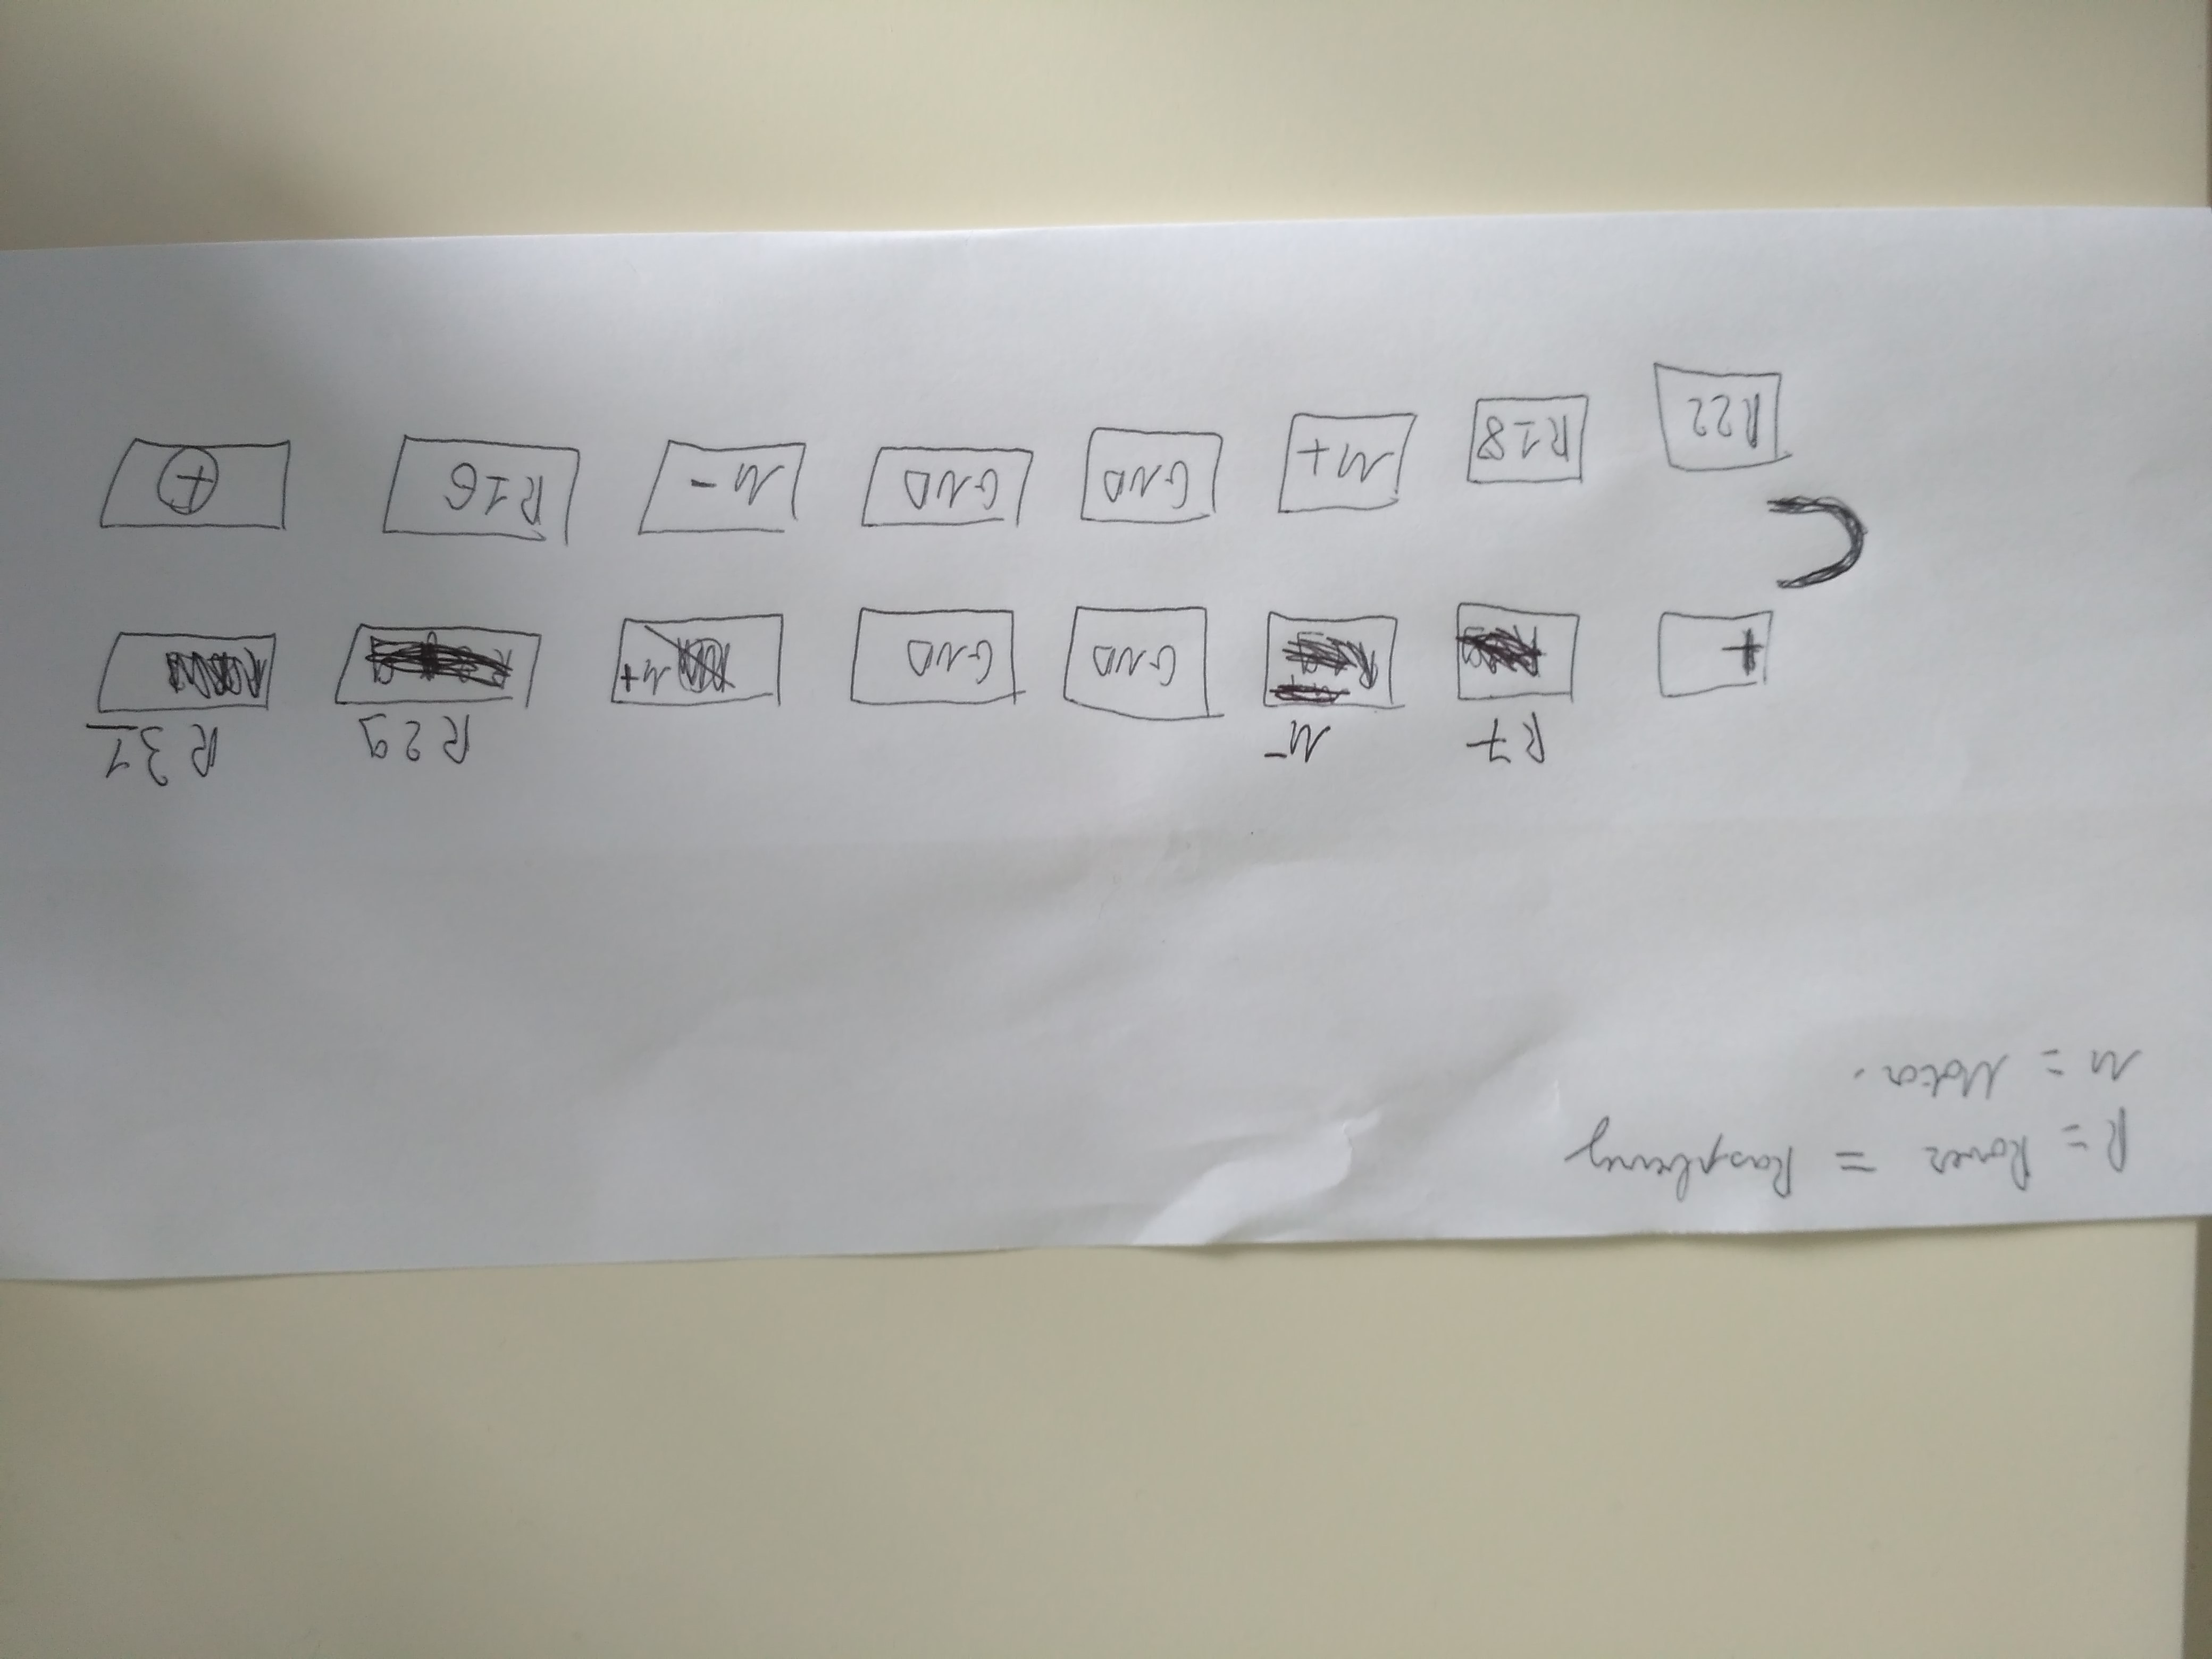 R = Rover = Raspberry
M = Motor.
R7 M- R29 R31
+ GND GND M+
R22 R18 M+ GND GND M- R16 +